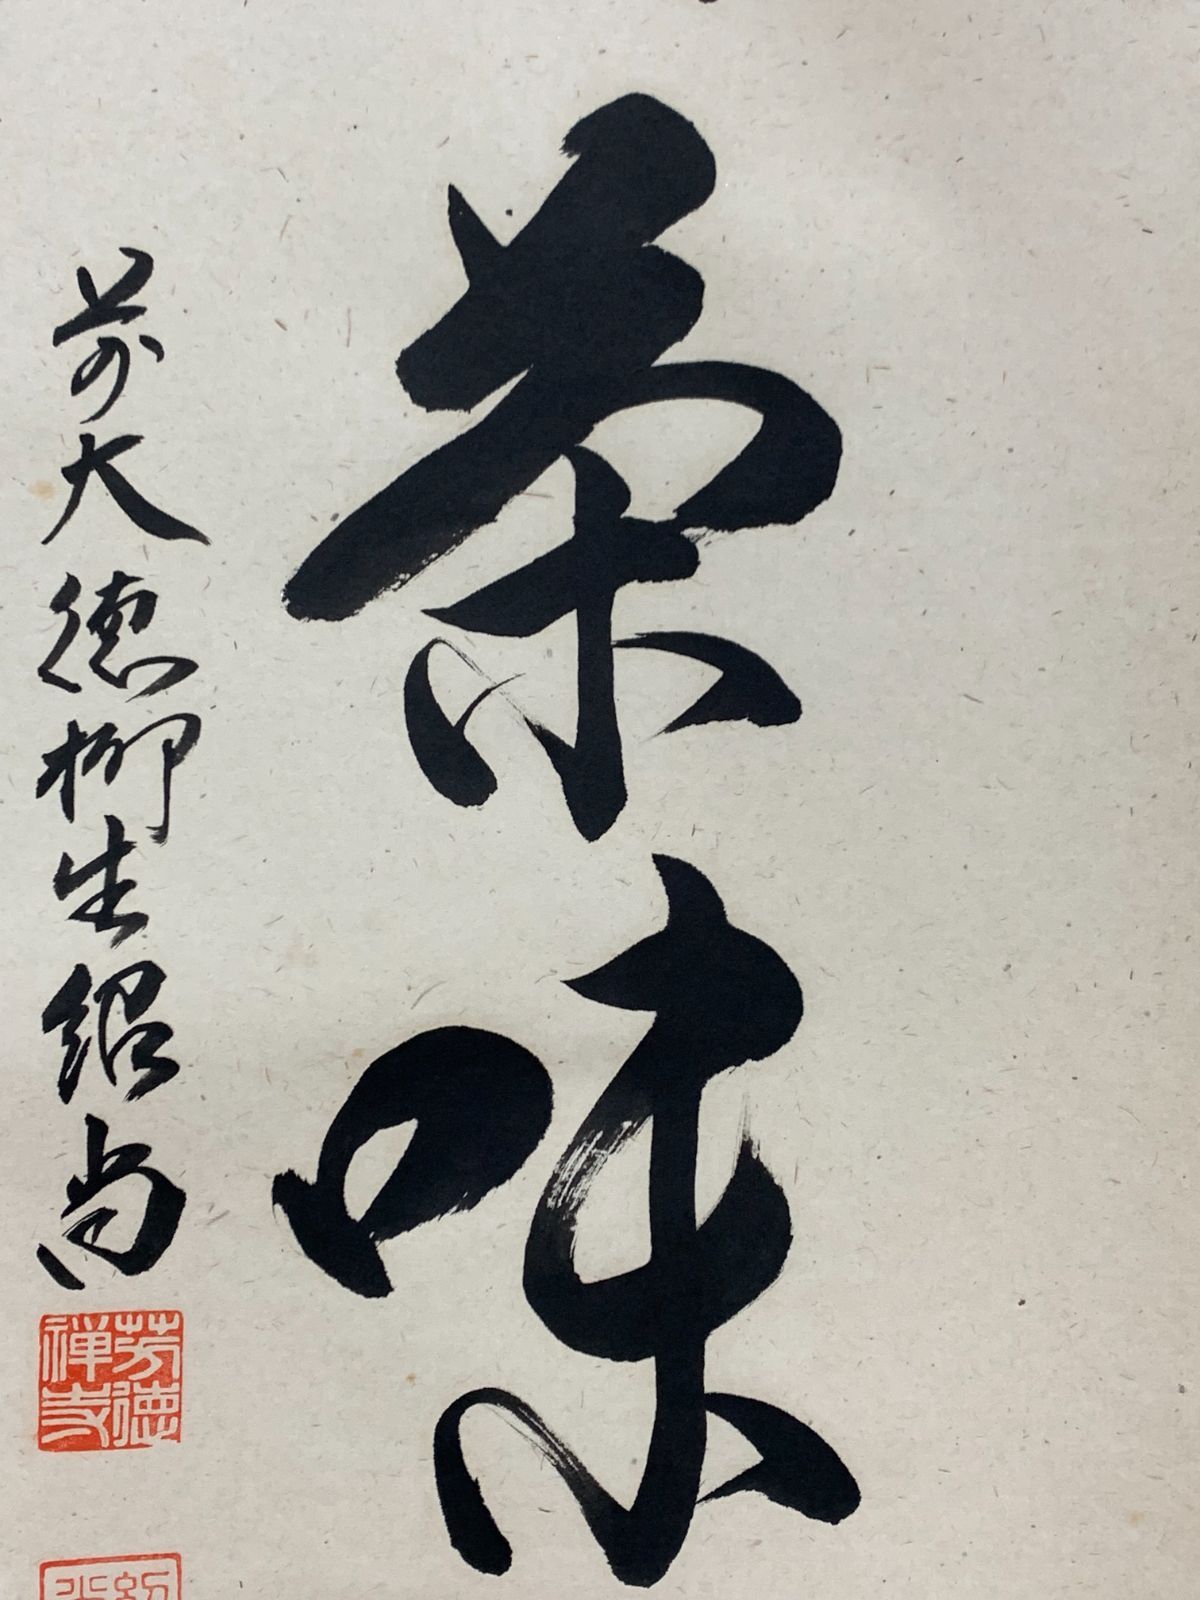 茶味
前大徳柳生紹尚
芳徳禅寺